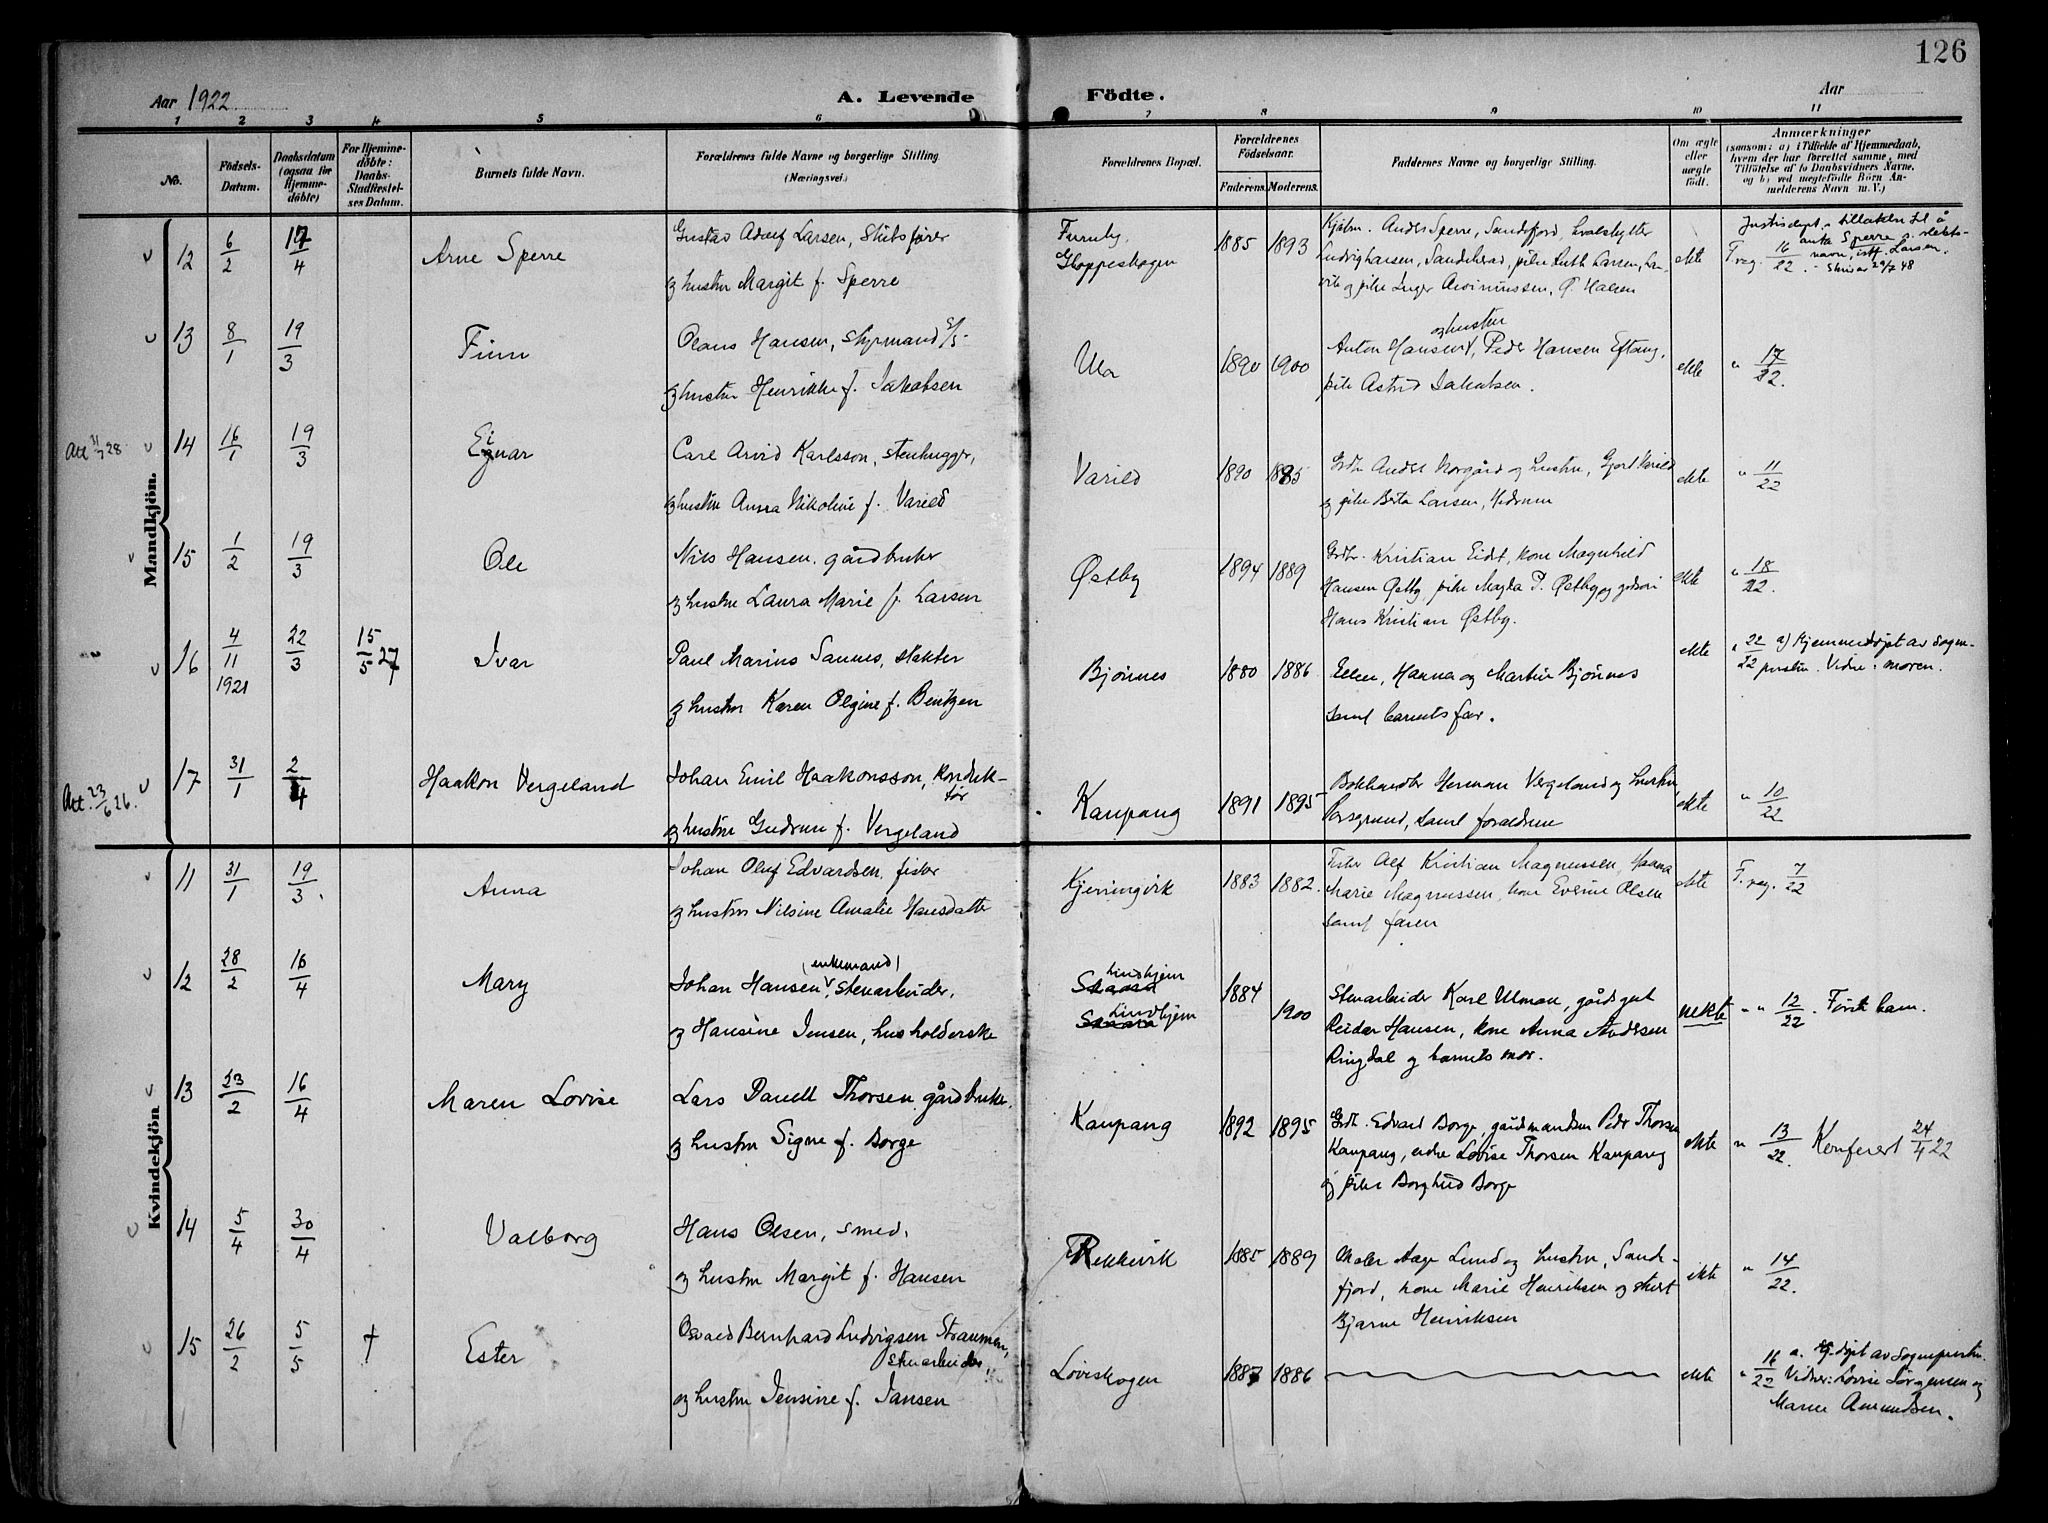 126
Aar 1922
A. Levende
Födte.
Aar
1 2 3 4 5 6 7 8 9 10 11
No.
Födsels-Datum.
Daabsdatum (ogsaa for Hjemme-döbte)
For Hjemme-döbte: Daabs-Stadfæstel-ses Datum.
Barnets fulde Navn.
Forældrenes fulde Navne og borgerlige Stilling. (Næringsvei.)
Forældrenes Bopæl.
Forældrenes Födselsaar.
Faderens. Moderens.
Faddernes Navne og borgerlige Stilling.
Om ægte eller uægte födt.
Anmærkninger
(saasom: a) i Tilfælde af Hjemmedaab,
hvem der har forrettet samme, med
Tilföielse af to Daabsvidners Navne,
og b) ved uægtefödte Börn An-
melderens Navn m. V.)
Mandkjön.
12 6/2 17/4 Arne Sperre
Gustav Adolf Larsen, Skibsfører
og hustru Margit f. Sperre
Furuly, Gloppeskogen
1885 1893
Kjøbm. Anders Sperre, Sandefjord, hvalskytter
Ludvig Larsen, Sandeherad, pike Ruth Larsen, Lar-
vik og pike Inger Arvinussen, Ø. Halsen
ekte
T. reg. 16/22.
Justisdept.s tillatelse til å
anta Sperre s. slekts-
navn, istf. Larsen.
- Skriv av 29/7 48
13 8/1 19/3 Finn
Olaus Hansen, styrmand S/S
og hustru Henrikke f. Jakobsen
Ula
1890 1900
og hustru
Anton Hansen, Peder Hansen Eftang,
pike Astrid Jakobsen.
ekte
" 17/22.
Att 31/7 28
14 16/1 19/3 Einar
Carl Arvid Karlsson, stenhugger,
og hustru Anna Nikoline f. Varild
Varild
1890 1895
Grdbr. Anders Norgård og hustru, Gjort Varild
og pike Berta Larsen, Hedrum
ekte
" 11/22
15 1/2 19/3 Ole
Nils Hansen, gårdbruker
og hustru Laura Marie f. Larsen
Østby
1894 1889
Grdbr. Kristian Eidet, kone Magnhild
Hansen Østby, pike Magda P. Østby og gutten
Hans Kristian Østby.
ekte
" 18/22.
16 4/11 1921 22/3 15/5 27 Ivar
Paul Marius Sannes, slakter
og hustru Karen Olgine f. Bentzen
Bjønnes
1880 1886
Ellen, Hanna og Martin Bjønnes
samt barnets far.
ekte
" 22/22 a) Hjemmedøpt av sogne-
presten. Vidne: moren.
Att. 23/6 26.
17 31/1 2/4 Haakon Vergeland
Johan Emil Haakonsson, konduk-
tør
og hustru Gudrun f. Vergeland
Kaupang
1891 1895
Bokhandler Herman Vergeland og hustru,
Porsgrund, samt forældrene
ekte
" 10/22
Kvindekjön
11 31/1 19/3. Anna
Johan Oluf Edvardsen, fisker
og hustru Nilsine Amalie Hansdatter
Kjerringvik
1883 1882
Fisker Alf Kristian Magnussen, Hanna
Marie Magnussen, kone Evine Olsen
samt faren
ekte
T. reg. 7/22
12 28/2 16/4 Mary
(enkemand)
Johan Hansen, stenarbeider,
og Hansine Jensen, husholderske
Lindhjem
Lindhjem
1884 1900
Stenarbeider Karl Ulman, gårdsgut
Reidar Hansen, kone Anna Andersen
Ringdal og barnets mor.
uekte
" " 12/22. Første barn.
13 23/2 16/4 Maren Lovise
Lars Danell Thorsen, gårdbruker,
og hustru Signe f. Borge
Kaupang
1892 1895
Grdbr. Edvard Borge, gårdmandsøn Peder Thorsen
Kaupang, enke Lovise Thorsen Kaupang
og pike Borghild Borge
ekte
" 13/22. Konferert 24/4 22
14 5/4 30/4 Valborg
Hans Olsen, smed,
og hustru Margit f. Hansen
Rekkevik
1885 1889
Maler Aage Lund og hustru, Sande-
fjord, kone Marie Henriksen og
Bjarne Henriksen
ekte
" 14/22.
15 26/2 5/5 † Ester
Osvald Bernhard Ludvigsen Straumen,
stenarbeider,
og hustru Jensine f. Jansen
Løviskogen
1887 1886
ekte
" 16/22 a. Hj.døpt av Sognepresten.
Vidner: Lovise Jørgensen og
Maren Amundsen.